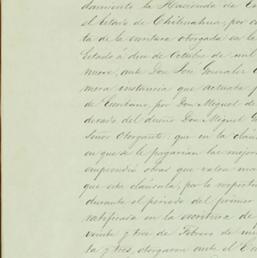 damiento la Hacienda de
el Estado de Chihuahua, por
ta de la escritura otorgada en
Estado á dos de Octubre de mil
nueve, ante Don José Gonzalez
mera instancia que actuaba
de Escribano, por Don Miguel
derado del dueño Don Miguel
Señor Otorgante, que en la
en que se le pagarian las
emprendió obras que valen
que esta cláusula, por lo
durante el periodo del primer
ratificada en la escritura de
veinte y tres de Febrero de
ta y tres, otorgaron ante el